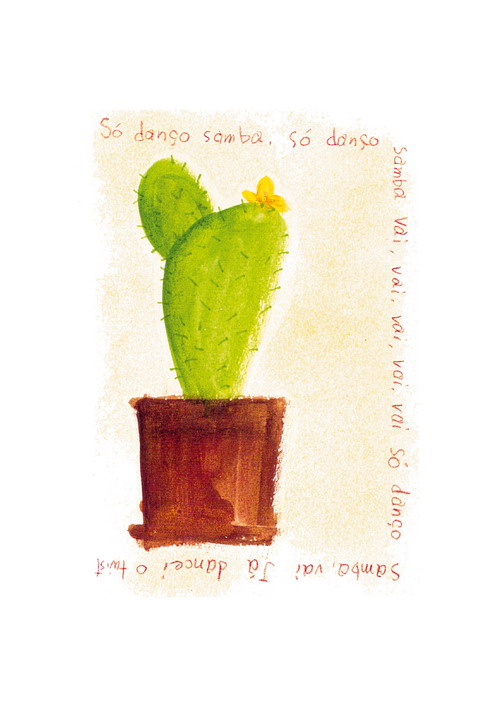 Só danço samba, só danço
samba vai, vai, vai, vai, vai só danço
samba, vai Já dancei o twist